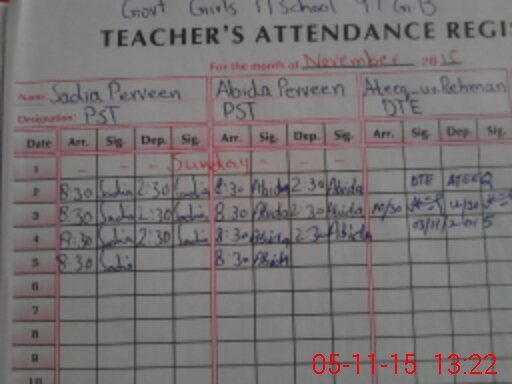 Govt Girls P/School 91 G.B
TEACHER'S ATTENDANCE REGIS
For the month of November 2015
Name: Sadia Perveen Abida Perveen Ateeq ur Rehman
Designation: PST PST DTE
Date Arr. Sig. Dep. Sig. Arr. Sig. Dep. Sig. Arr. Sig. Dep. Sig
1 - - - Sunday - - -
2 8:30 Sadia 2:30 Sadia 8:30 Abida 2:30 Abida DTE ATEEQ
3 8:30 Sadia 2:30 Sadia 8:30 Abida 2:30 Abida 10/30 12/30
4 8:30 Sadia 2:30 Sadia 8:30 Abida 2:30 Abida 03/11/2015
5 8:30 Sadia 8:30 Abida
6
7
8
9
10
05-11-15 13:22